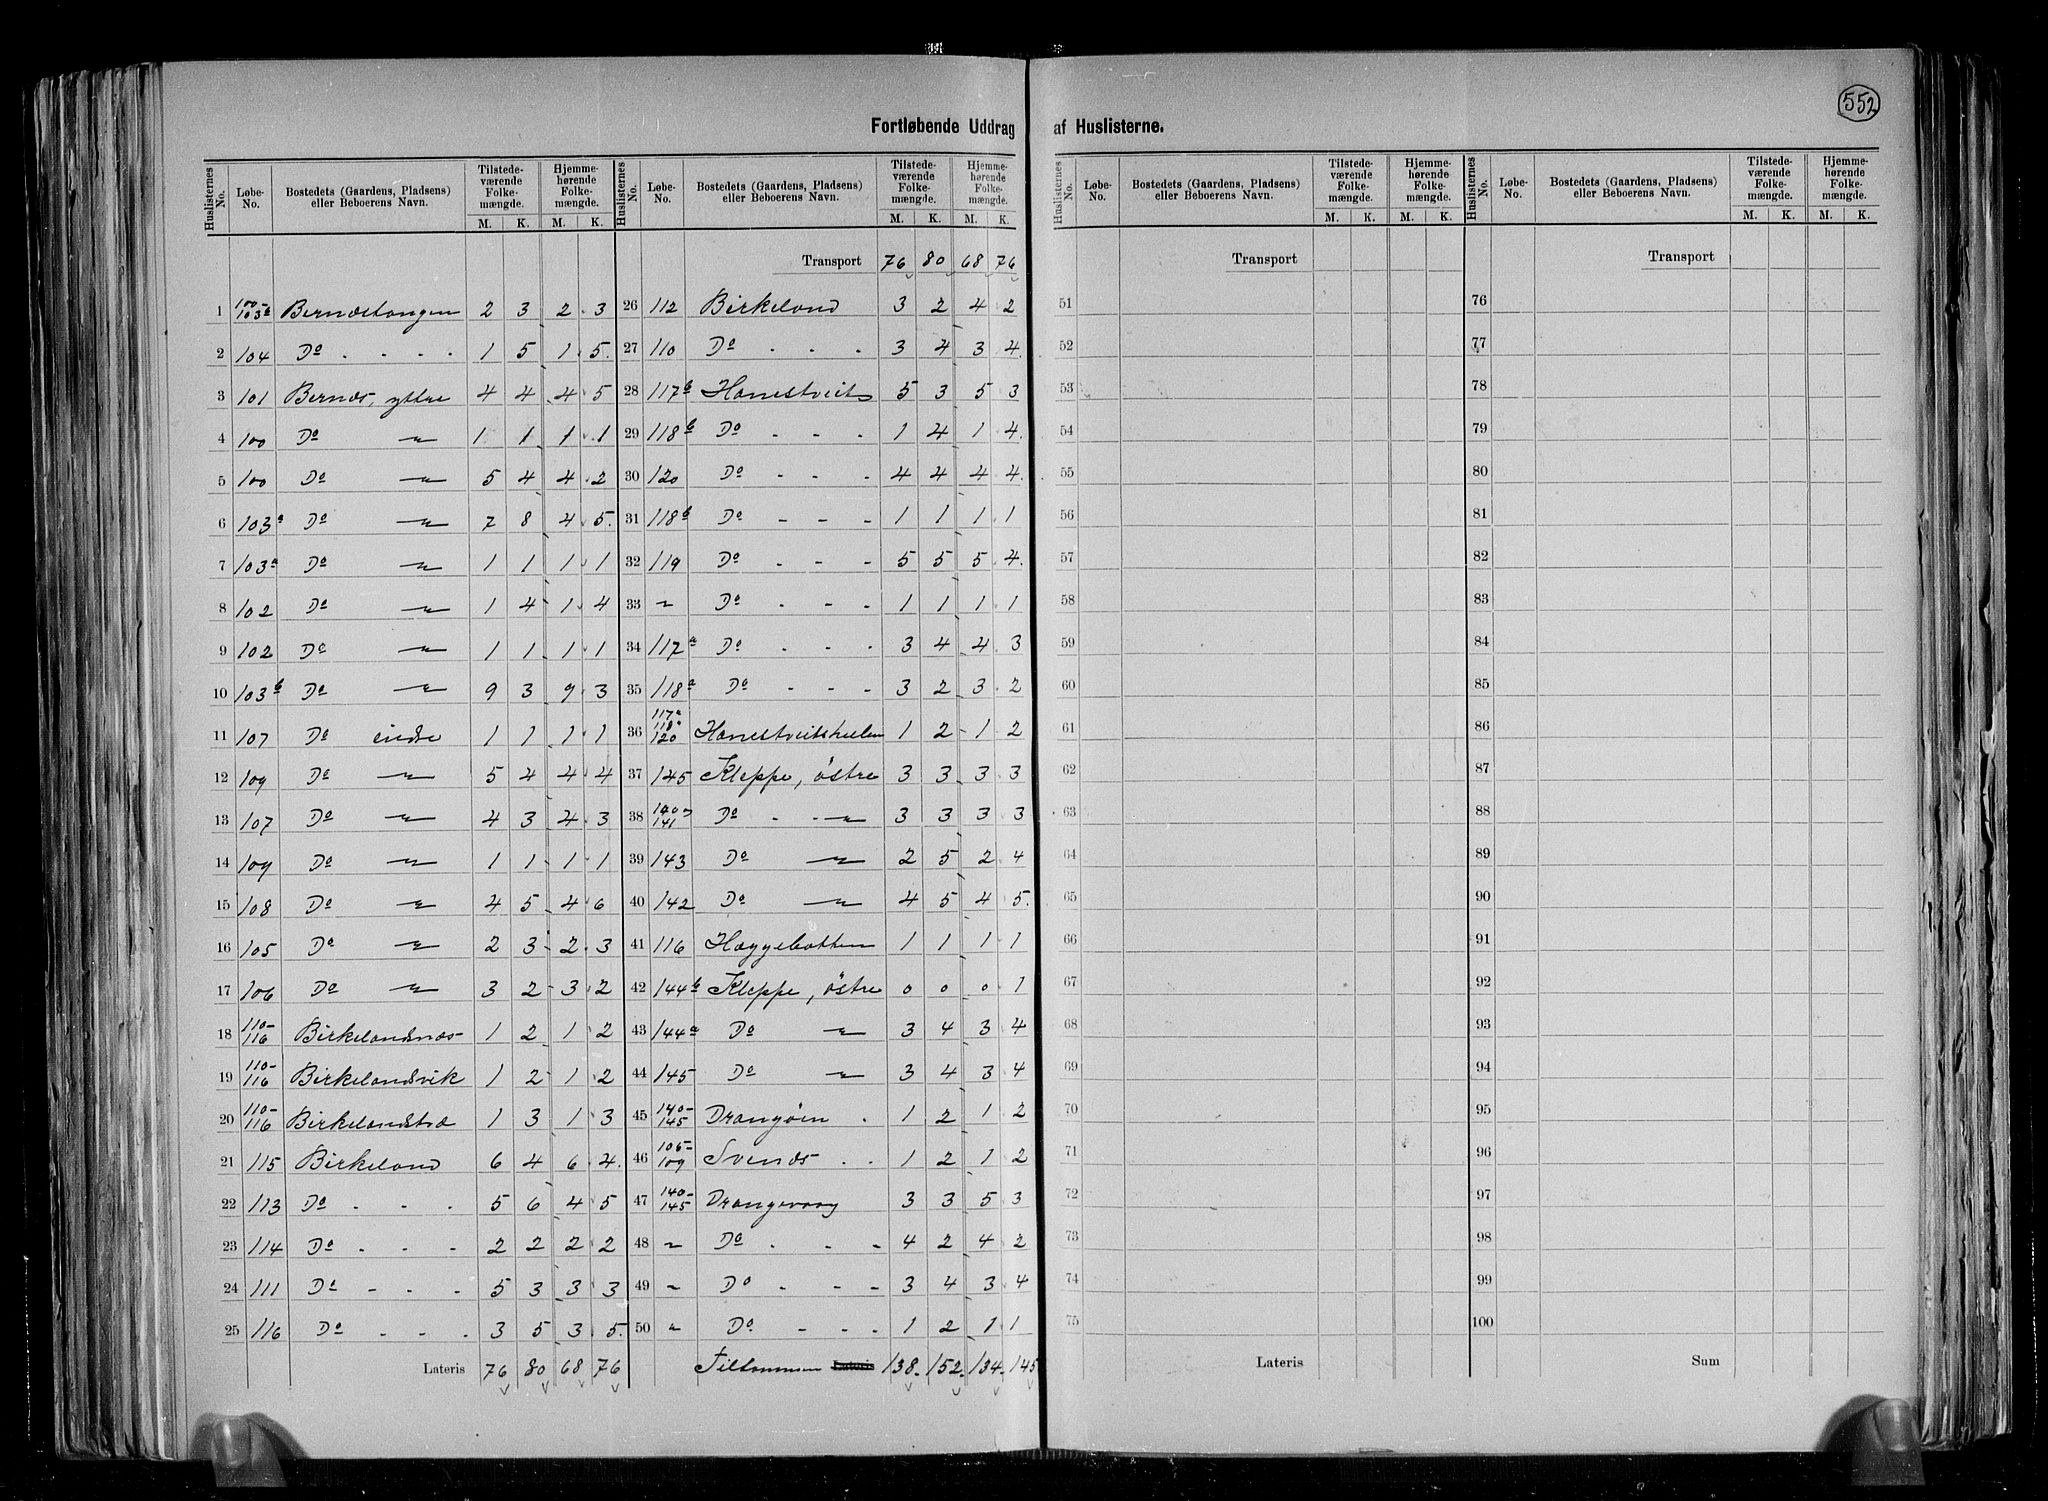 552
Fortløbende Uddrag af Huslisterne.
Huslisternes No. Løbe-No. Bostedets (Gaardens, Pladsens) eller Beboerens Navn. Tilstede-værende Folke-mængde. M. K. Hjemme-hørende Folke-mængde. M. K.
1 100-103a Bernæstangen 2 3 2 3
2 104 Do 1 5 1 5
3 101 Bernæs, yttre 4 4 4 5
4 100 Do 〃 1 1 1 1
5 100 Do 〃 5 4 4 2
6 103a Do 〃 7 8 4 5
7 103a Do 〃 1 1 1 1
8 102 Do 〃 1 4 1 4
9 102 Do 〃 1 1 1 1
10 103b Do 〃 9 3 9 3
11 107 Do indre 1 1 1 1
12 109 Do 〃 5 4 4 4
13 107 Do 〃 4 3 4 3
14 109 Do 〃 1 1 1 1
15 108 Do 〃 4 5 4 6
16 105 Do 〃 2 3 2 3
17 106 Do 〃 3 2 3 2
18 110-116 Birkelandsnæs 1 2 1 2
19 110-116 Birkelandsvik 1 2 1 2
20 110-116 Birkelandstræ 1 3 1 3
21 115 Birkeland 6 4 6 4
22 113 Do 5 6 4 5
23 114 Do 2 2 2 2
24 111 Do 5 3 3 3
25 116 Do 3 5 3 5
Lateris 76 80 68 76
Huslisternes No. Løbe-No. Bostedets (Gaardens, Pladsens) eller Beboerens Navn. Tilstede-værende Folke-mængde. M. K. Hjemme-hørende Folke-mængde. M. K.
Transport 76 80 68 76
26 112 Birkeland 3 2 4 2
27 110 Do 3 4 3 4
28 117b Hanestveit 5 3 5 3
29 118b Do 1 4 1 4
30 120 Do 4 4 4 4
31 118b Do 1 1 1 1
32 119 Do 5 5 5 4
33 〃 Do 1 1 1 1
34 117a Do 3 4 4 3
35 118a Do 3 2 3 2
36 117a 118a 120 1 2 1 2
37 145 Kleppe, østre 3 3 3 3
38 140 141 Do 〃 3 3 3 3
39 143 Do 〃 2 5 2 4
40 142 Do 〃 4 5 4 5
41 116 Hæggebotten 1 1 1 1
42 144b Kleppe, østre 0 0 0 1
43 144a Do 〃 3 4 3 4
44 145 Do 〃 3 4 3 4
45 140-145 Drangøen 1 2 1 2
46 105-109 Svenæs 1 2 1 2
47 140-145 Drangevaag 3 3 5 3
48 〃 Do 4 2 4 2
49 〃 Do 3 4 3 4
50 〃 Do 1 2 1 1
Tilsammen Lateris 138 152 134 145
Huslisternes No. Løbe-No. Bostedets (Gaardens, Pladsens) eller Beboerens Navn. Tilstede-værende Folke-mængde. M. K. Hjemme-hørende Folke-mængde. M. K.
Transport
51
52
53
54
55
56
57
58
59
60
61
62
63
64
65
66
67
68
69
70
71
72
73
74
75
Lateris
Huslisternes No. Løbe-No. Bostedets (Gaardens, Pladsens) eller Beboerens Navn. Tilstede-værende Folke-mængde. M. K. Hjemme-hørende Folke-mængde. M. K.
Transport
76
77
78
79
80
81
82
83
84
85
86
87
88
89
90
91
92
93
94
95
96
97
98
99
100
Sum